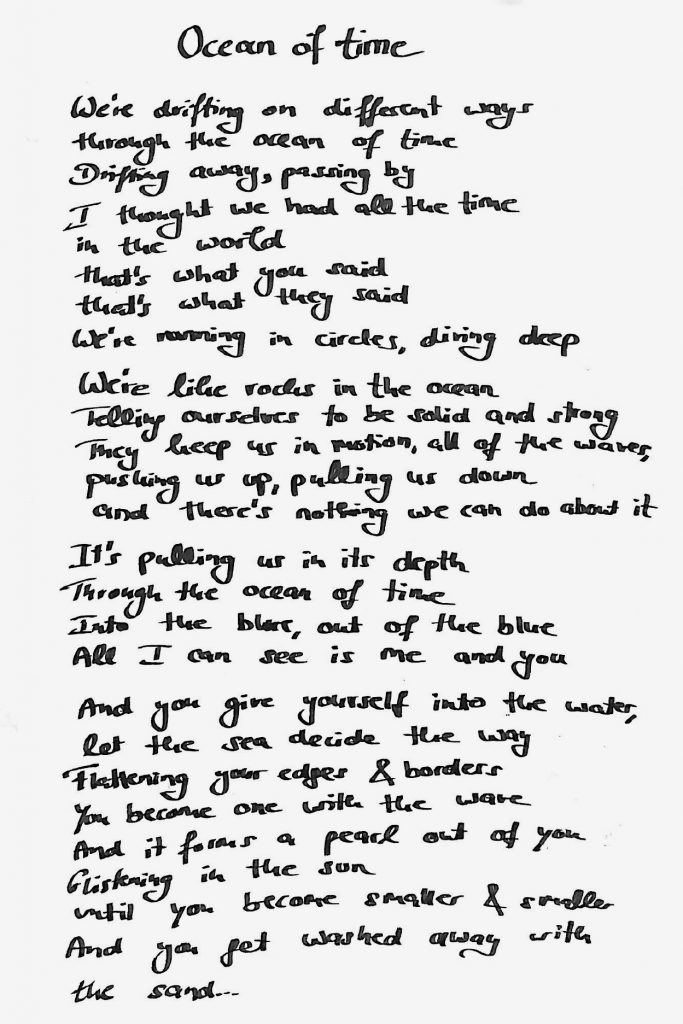 Ocean of time
We're drifting on different ways
through the ocean of time
Drifting away, passing by
I thought we had all the time
in the world
that's what you said
that's what they said
We're running in circles, diving deep
We're like rocks in the ocean
Telling ourselves to be solid and strong
They keep us in motion, all of the waves,
pushing us up, pulling us down
and there's nothing we can do about it
It's pulling us in its depth
Through the ocean of time
Into the blue, out of the blue
All I can see is me and you
And you give yourself into the water,
let the sea decide the way
Flattening your edges & borders
You become one with the wave
And it forms a pearl out of you
Glistening in the sun
until you become smaller & smaller
And you get washed away with
the sand...